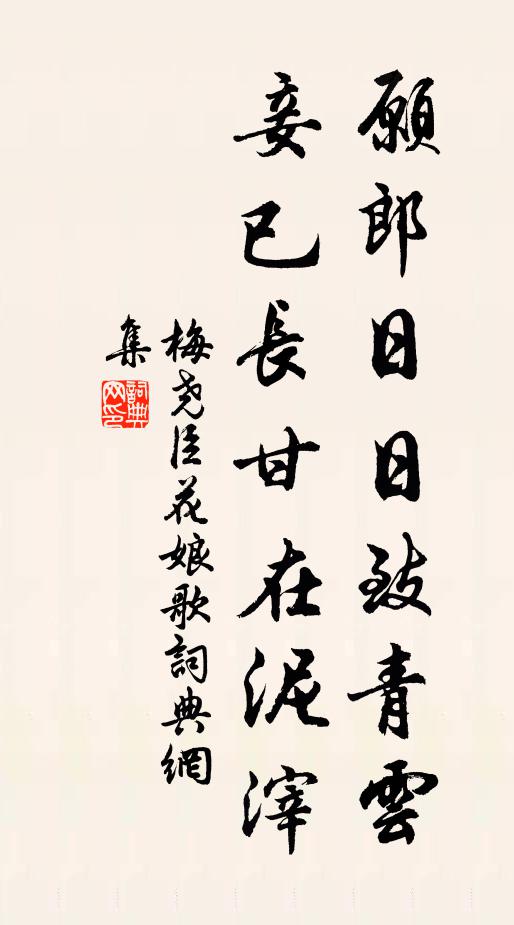 願郎日日致青雲
妾已長甘在泥滓
梅堯臣花娘歌詞典網
集
詞典網印